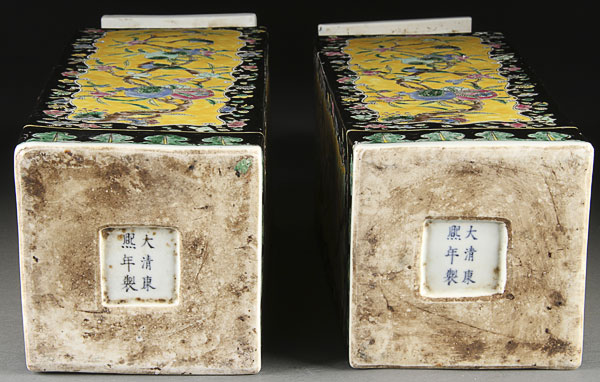 大清康
熙年製
大清康
熙年製